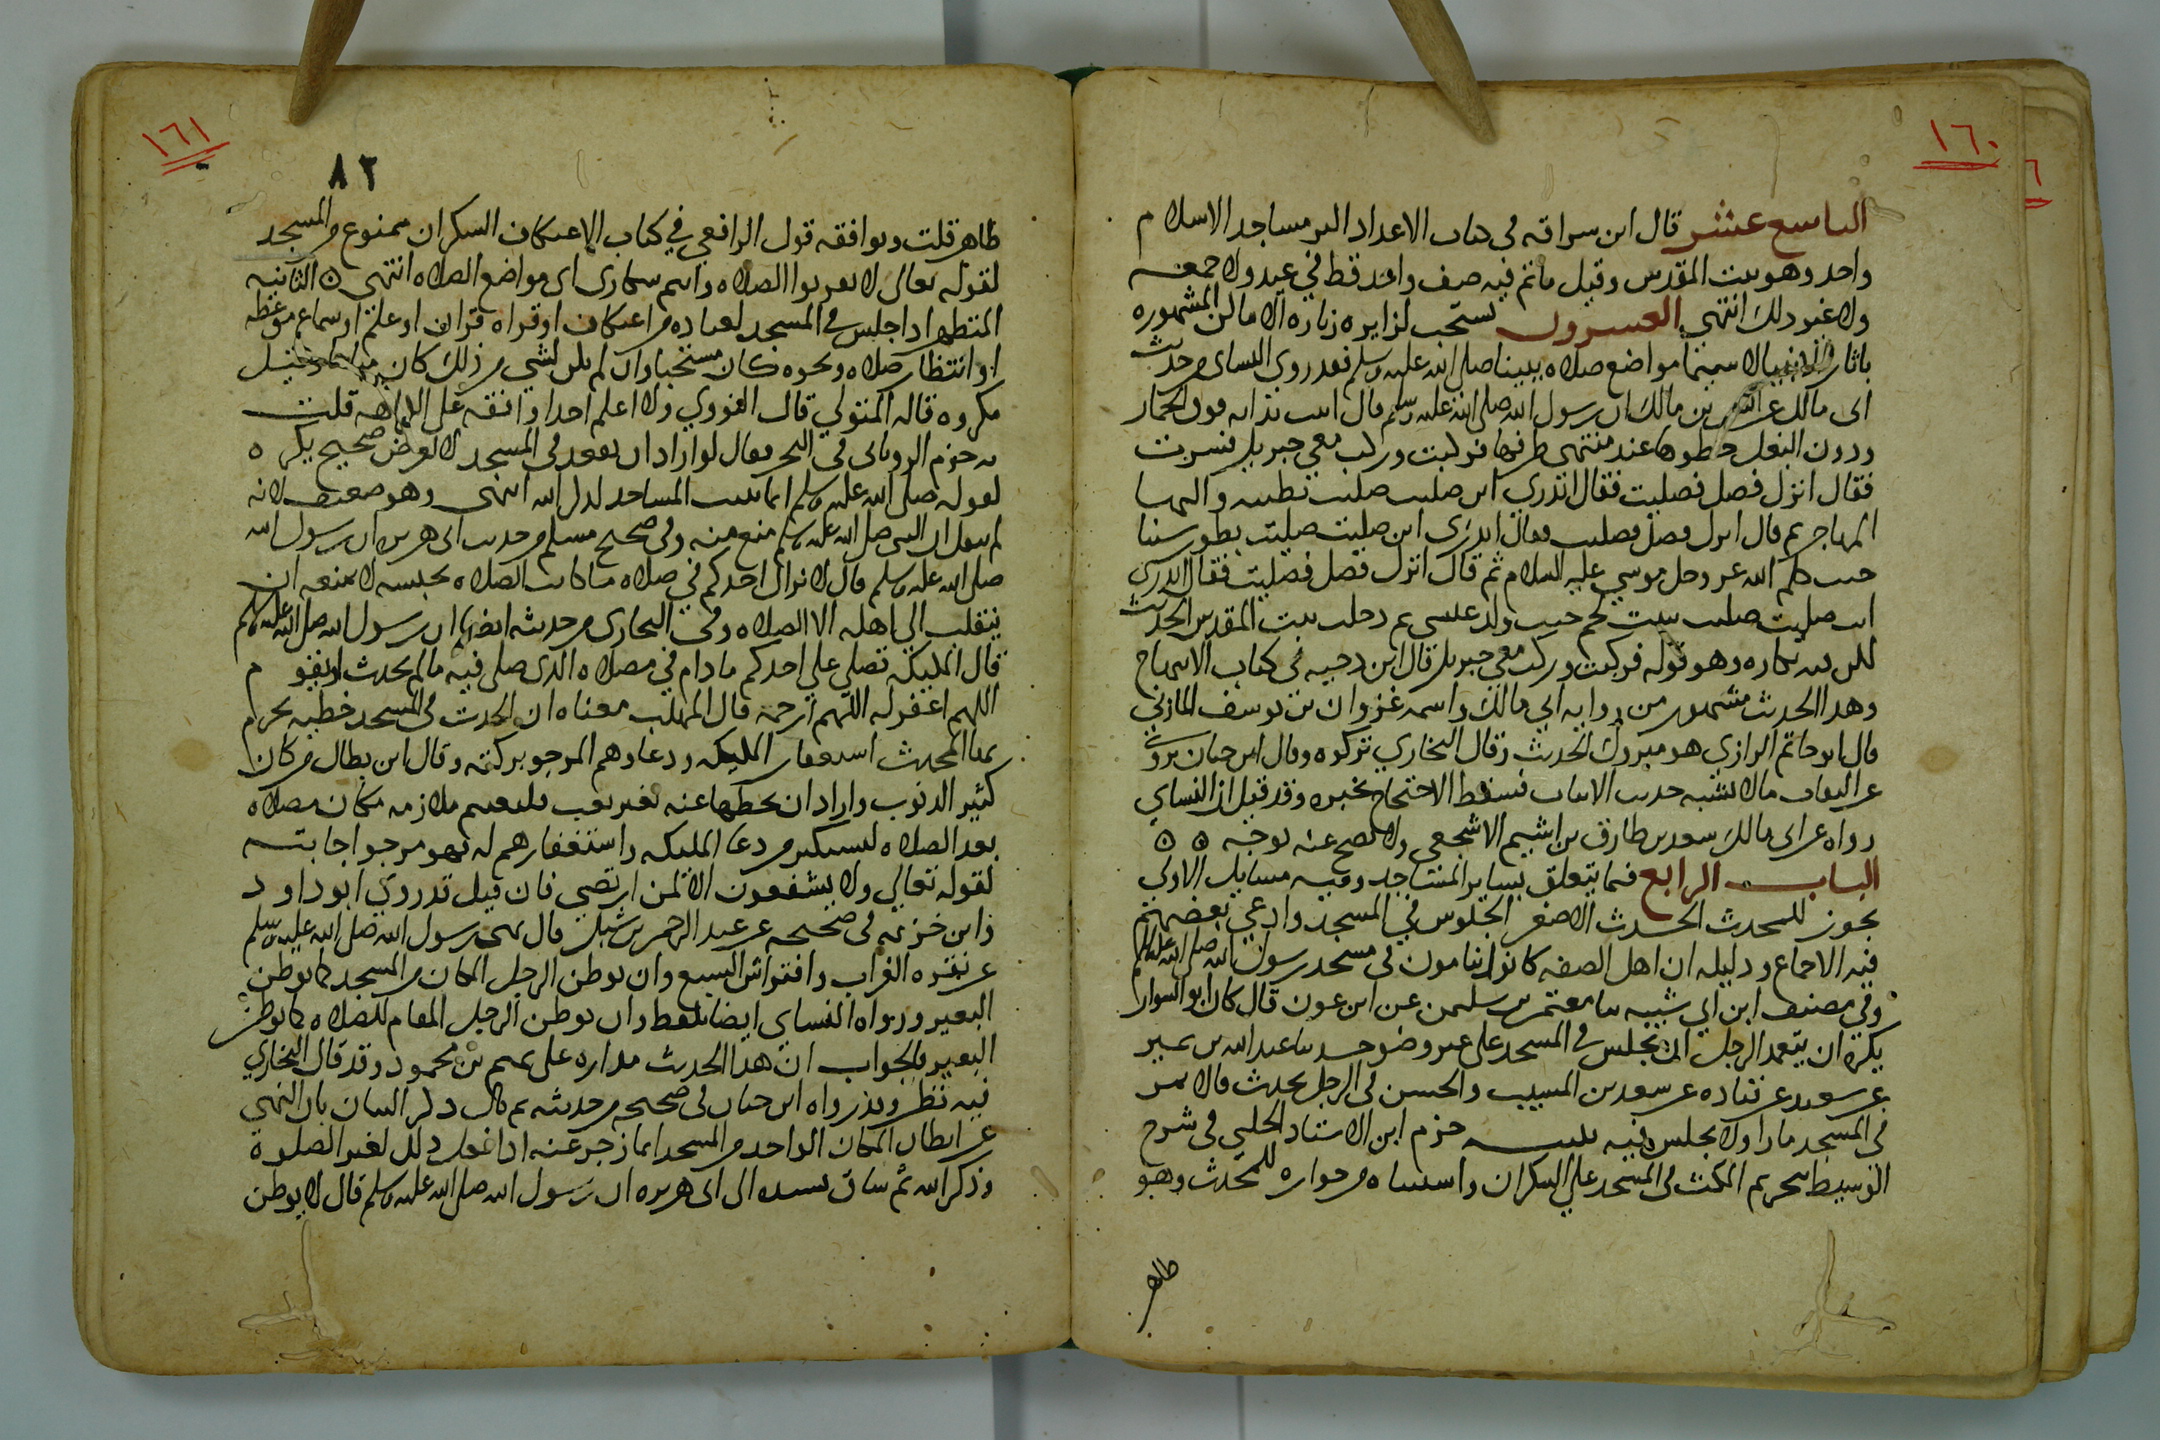 ١٦٠
التاسع عشر قال ابن سراقه في كتاب الاعداد اكبر مساجد الاسلام
واحد وهو بيت المقدس وقيل ما تم فيه صف واحد قط في عيد ولا جمعه
ولا غير ذلك انتهي العشرون تستحب لزايره زياره الاماكن المشهوره
باثار الانبيا لا سيما مواضع صلاه نبينا صلى الله عليه وسلم فقد روى النساى من حديث
ابى مالك عن انس بن مالك ان رسول الله صلى الله عليه وسلم قال اتيت بدابه فوق الحمار
ودون البغل خطوها عند منتهى طرفها فركبت وركب معي جبريل فسرت
فقال انزل فصل فصليت فقال اتدري اين صليت صليت بطيبه واليها
المهاجر ثم قال انزل فصل فصليت فقال اتدرى اين صليت صليت بطور سينا
حيث كلم الله عز وجل موسي عليه السلام ثم قال انزل فصل فصليت فقال اتدرى
اين صليت صليت ببيت لحم حيث ولد عيسى ثم دخلت بيت المقدس الحديث
لكن فيه نكاره وهو قوله فركبت وركب معي جبريل قال ابن دحيه في كتاب الابتهاج
وهذا الحديث مشهور من روايه ابي مالك واسمه غزوان بن يوسف المازني
قال ابو حاتم الرازي هو متروك الحديث وقال البخاري تركوه وقال ابن حبان يروي
عن الثقات ما لا يشبه حديث الاثبات فسقط الاحتجاج بخبره وقد قيل ان النساي
رواه عن ابى مالك سعد بن طارق بن اشيم الاشجعي ولا يصح عنه بوجه ٥ ٥
الباب الرابع فيما يتعلق بساير المساجد وفيه مسايل الاولي
يجوز للمحدث الحدث الاصغر الجلوس في المسجد وادعي بعضهم
فيه الاجماع ودليله ان اهل الصفه كانوا ينامون في مسجد رسول الله صلى الله عليه وسلم
وفي مصنف ابن ابي شيبه ثنا معتمر بن سليمن عن ابن عون قال كان ابو السوار
يكره ان يتعمد الرجل ان يجلس في المسجد على غير وضو حدثنا عبد الله بن نمير
عن سعيد عن قتاده عن سعد بن المسيب والحسن في الرجل يحدث قالا يمر
في المسجد مارا ولا يجلس فيه تنبيه جزم ابن الاستاد الحلبي في شرح
الوسيط بتحريم المكث في المسجد علي السكران واستثناه من جوازه للمحدث وهو
ظاهر
١٦١
٨٢
ظاهر قلت ويوافقه قول الرافعي في كتاب الاعتكاف السكران ممنوع من المسجد
لقوله تعالى لا تقربوا الصلاه وانتم سكارى اى مواضع الصلاه انتهى ٥ الثانيه
المتطهر اذا جلس في المسجد لعباده من اعتكاف او قراه قران او علم او سماع موعظه
او انتظار صلاه ونحوه كان مستحبا وان لم يكن لشي من ذلك كان مباحا وقيل
مكروه قاله المتولي قال النووي ولا اعلم احدا وافقه على الكراهه قلت
به جزم الرويانى في البحر فقال لو اراد ان يقعد في المسجد لا لغرض صحيح يكره
لقوله صلى الله عليه وسلم انما بنيت المساجد لذكر الله انتهى وهو ضعيف لانه
لم ينقل ان النبى صلى الله عليه وسلم منع منه وفي صحيح مسلم من حديث ابى هريره ان رسول الله
صلى الله عليه وسلم قال لا يزال احدكم في صلاه ما كانت الصلاه تحبسه لا يمنعه ان
ينقلب الي اهله الا الصلاه وفي البخارى من حديثه ايضا ان رسول الله صلى الله عليه وسلم
قال المليكه تصلي علي احدكم ما دام في مصلاه الذى صلى فيه ما لم يحدث او يقوم
اللهم اغفر له اللهم ارحمه قال المهلب معناه ان الحدث في المسجد خطيه يحرم
بها المحدث استغفار المليكه ودعاوهم المرجو بركته وقال ابن بطال من كان
كثير الذنوب واراد ان يحطها عنه بغير تعب فليغتنم ملازمه مكان مصلاه
بعد الصلاه ليستكثر من دعا المليكه واستغفارهم له فهو مرجو اجابته
لقوله تعالي ولا يشفعون الا لمن ارتضي فان قيل قد روي ابو داود
وابن خزيمه في صحيحه عن عبد الرحمن بن شبل قال نهى رسول الله صلى الله عليه وسلم
عن نقره الغراب وافتراش السبع وان يوطن الرجل المكان من المسجد كما يوطن
البعير ورواه النساي ايضا بلفظ وان يوطن الرجل المقام للصلاه كما يوطن
البعير فالجواب ان هذا الحديث مداره على تميم بن محمود وقد قال البخاري
فيه نظر وقد رواه ابن حبان في صحيحه من حديثه ثم قال ذكر البيان بان النهي
عن ايطان المكان الواحد من المسجد انما زجر عنه اذا فعل ذلك لغير الصلوة
وذكر الله ثم ساق بسنده الى ابى هريره ان رسول الله صلى الله عليه وسلم قال لا يوطن